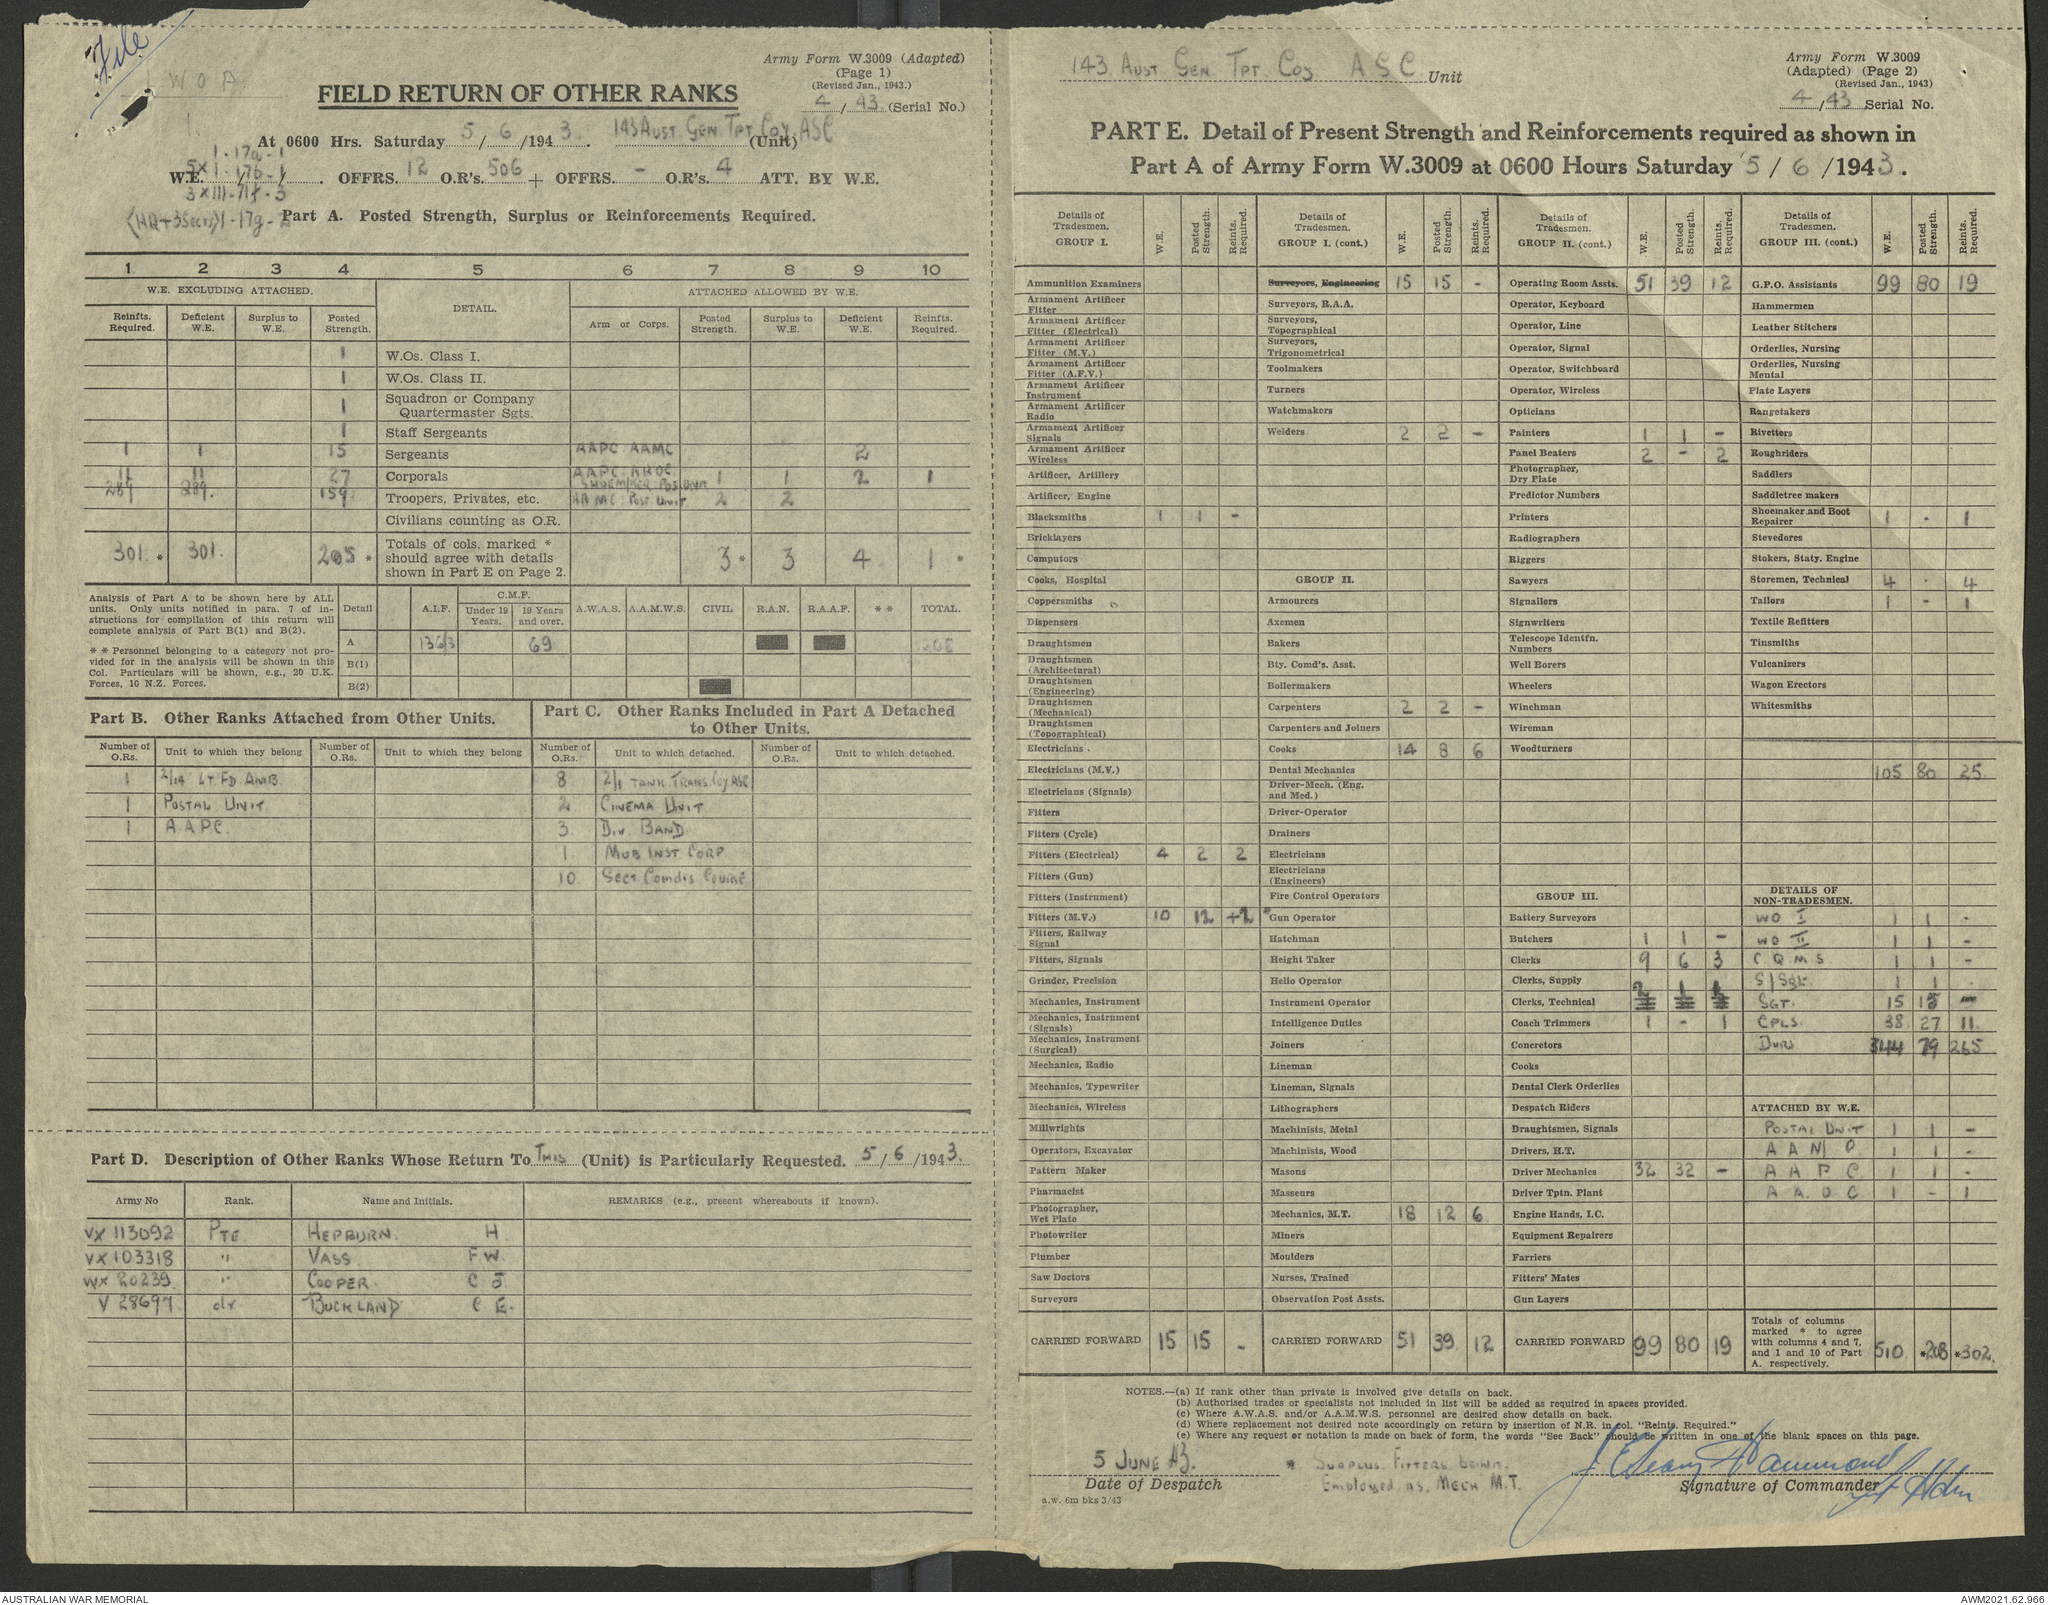 File
W O A
1.
Army Form W.3009 (Adapted)
(Page 1)
(Revised Jan., 1943.)
4 / 43 (Serial No.)
FIELD RETURN OF OTHER RANKS
At 0600 Hrs. Saturday 5/6/1943. 143 Aust. Gen. Tpt Coy, ASC (Unit)
1 - 17a - 1
5 x 1 - 17b - 1
W.E. / / . OFFRS. 12 O.R's. 506 + OFFRS. - O.R's. 4 ATT. BY W.E.
3 x III - 71f - 3
(HQ + 3 Secs) 1 - 17g - 2
Part A. Posted Strength, Surplus or Reinforcements Required.
1 2 3 4 5 6 7 8 9 10
W.E. EXCLUDING ATTACHED. DETAIL. ATTACHED ALLOWED BY W.E.
Reinfts. Required. Deficient W.E. Surplus to W.E. Posted Strength. Arm or Corps. Posted Strength. Surplus to W.E. Deficient W.E. Reinfts. Required.
1 W.Os. Class I.
1 W.Os. Class II.
1 Squadron or Company Quartermaster Sgts.
1 Staff Sergeants
1 1 15 Sergeants AAPC AAMC 2
11 11 27 Corporals AAPC AAOC 1 1 2 1
289 289. 159 Troopers, Privates, etc. Shoemaker Pos Unit AAMC Post. Unit 2 2
Civilians counting as O.R.
301 * 301. 205 * Totals of cols. marked * should agree with details shown in Part E on Page 2. 3 * 3 4 1 *
Analysis of Part A to be shown here by ALL units. Only units notified in para. 7 of instructions for compilation of this return will complete analysis of Part B(1) and B(2).
* * Personnel belonging to a category not provided for in the analysis will be shown in this Col. Particulars will be shown, e.g., 20 U.K. Forces, 10 N.Z. Forces.
Detail A.I.F. C.M.F. Under 19 Years. 19 Years and over. A.W.A.S. A.A.M.W.S. CIVIL R.A.N. R.A.A.F. * * TOTAL.
A 136/3 69 205
B(1)
B(2)
Part B. Other Ranks Attached from Other Units.
Part C. Other Ranks Included in Part A Detached to Other Units.
Number of O.Rs. Unit to which they belong Number of O.Rs. Unit to which they belong Number of O.Rs. Unit to which detached. Number of O.Rs. Unit to which detached.
1 2/14 Lt Fd Amb. 8 2/1 Tank Trans. Coy. ASC
1 Postal Unit 2 Cinema Unit
1 A.A.P.C. 3 Div Band
1 Mub Inst Corp
10 Sect Comdrs Course
Part D. Description of Other Ranks Whose Return To This (Unit) is Particularly Requested. 5/6/1943.
Army No Rank. Name and Initials. REMARKS (e.g., present whereabouts if known).
VX 113092 Pte Hepburn H
VX 103318 " Vass F W
WX 20239 " Cooper C J
V 28697 dr Buckland C E.
143 Aust Gen. Tpt Coy A S C Unit
Army Form W.3009
(Adapted) (Page 2)
(Revised Jan., 1943)
4 / 43 Serial No.
PART E. Detail of Present Strength and Reinforcements required as shown in
Part A of Army Form W.3009 at 0600 Hours Saturday 5/6/1943.
Details of Tradesmen. GROUP I. W.E. Posted Strength. Reints. Required.
Ammunition Examiners
Armament Artificer Fitter
Armament Artificer Fitter (Electrical)
Armament Artificer Fitter (M.V.)
Armament Artificer Fitter (A.F.V.)
Armament Artificer Instrument
Armament Artificer Radio
Armament Artificer Signals
Armament Artificer Wireless
Artificer, Artillery
Artificer, Engine
Blacksmiths 1 1 -
Bricklayers
Computors
Cooks, Hospital
Coppersmiths
Dispensers
Draughtsmen
Draughtsmen (Architectural)
Draughtsmen (Engineering)
Draughtsmen (Mechanical)
Draughtsmen (Topographical)
Electricians
Electricians (M.V.)
Electricians (Signals)
Fitters
Fitters (Cycle)
Fitters (Electrical) 4 2 2
Fitters (Gun)
Fitters (Instrument)
Fitters (M.V.) 10 12 +2 *
Fitters, Railway Signal
Fitters, Signals
Grinder, Precision
Mechanics, Instrument
Mechanics, Instrument (Signals)
Mechanics, Instrument (Surgical)
Mechanics, Radio
Mechanics, Typewriter
Mechanics, Wireless
Millwrights
Operators, Excavator
Pattern Maker
Pharmacist
Photographer, Wet Plate
Photowriter
Plumber
Saw Doctors
Surveyors
CARRIED FORWARD 15 15 -
Details of Tradesmen. GROUP I. (cont.) W.E. Posted Strength. Reints. Required.
Surveyors, Engineering 15 15 -
Surveyors, R.A.A.
Surveyors, Topographical
Surveyors, Trigonometrical
Toolmakers
Turners
Watchmakers
Welders 2 2 -
GROUP II.
Armourers
Axemen
Bakers
Bty. Comd's. Asst.
Boilermakers
Carpenters 2 2 -
Carpenters and Joiners
Cooks 14 8 6
Dental Mechanics
Driver-Mech. (Eng. and Med.)
Driver-Operator
Drainers
Electricians
Electricians (Engineers)
Fire Control Operators
Gun Operator
Hatchman
Height Taker
Helio Operator
Instrument Operator
Intelligence Duties
Joiners
Lineman
Lineman, Signals
Lithographers
Machinists, Metal
Machinists, Wood
Masons
Masseurs
Mechanics, M.T. 18 12 6
Miners
Moulders
Nurses, Trained
Observation Post Assts.
CARRIED FORWARD 51 39 12
Details of Tradesmen. GROUP II. (cont.) W.E. Posted Strength. Reints. Required.
Operating Room Assts. 51 39 12
Operator, Keyboard
Operator, Line
Operator, Signal
Operator, Switchboard
Operator, Wireless
Opticians
Painters 1 1 -
Panel Beaters 2 - 2
Photographer, Dry Plate
Predictor Numbers
Printers
Radiographers
Riggers
Sawyers
Signallers
Signwriters
Telescope Identfn. Numbers
Well Borers
Wheelers
Winchman
Wireman
Woodturners
GROUP III.
Battery Surveyors
Butchers 1 1 -
Clerks 9 6 3
Clerks, Supply
Clerks, Technical 2 1 1
Coach Trimmers 1 - 1
Concretors
Cooks
Dental Clerk Orderlies
Despatch Riders
Draughtsmen, Signals
Drivers, H.T.
Driver Mechanics 32 32 -
Driver Tptn. Plant
Engine Hands, I.C.
Equipment Repairers
Farriers
Fitters' Mates
Gun Layers
CARRIED FORWARD 99 80 19
Details of Tradesmen. GROUP III. (cont.) W.E. Posted Strength. Reints. Required.
G.P.O. Assistants 99 80 19
Hammermen
Leather Stitchers
Orderlies, Nursing
Orderlies, Nursing Mental
Plate Layers
Rangetakers
Rivetters
Roughriders
Saddlers
Saddletree makers
Shoemaker and Boot Repairer 1 - 1
Stevedores
Stokers, Staty. Engine
Storemen, Technical 4 - 4
Tailors 1 - 1
Textile Refitters
Tinsmiths
Vulcanizers
Wagon Erectors
Whitesmiths
105 80 25
DETAILS OF NON-TRADESMEN.
WO I 1 1 -
WO II 1 1 -
C Q M S 1 1 -
S/Sgt. 1 1
Sgt. 15 15 -
Cpls. 38 27 11
Dvrs 344 79 265
ATTACHED BY W.E.
Postal Unit 1 1 -
1 1 -
A A P C 1 1 -
A A O C 1 - 1
Totals of columns marked * to agree with columns 4 and 7, and 1 and 10 of Part A. respectively. 510 *208 *302.
NOTES.—(a) If rank other than private is involved give details on back.
(b) Authorised trades or specialists not included in list will be added as required in spaces provided.
(c) Where A.W.A.S. and/or A.A.M.W.S. personnel are desired show details on back.
(d) Where replacement not desired note accordingly on return by insertion of N.R. in col. "Reints. Required."
(e) Where any request or notation is made on back of form, the words "See Back" should be written in one of the blank spaces on this page.
5 June 43.
Date of Despatch
a.w. 6m bks 3/43
* Surplus Fitters being
Employed as Mech M.T.
Hammond
Signature of Commander
AUSTRALIAN WAR MEMORIAL
AWM2021.62.966